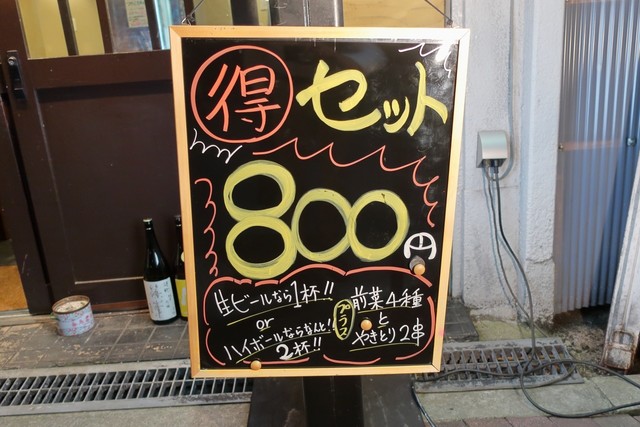 得 セット
800円
生ビールなら1杯!!
or
ハイボールならなんと!
2杯!!
プラス
前菜4種
と
やきとり2串